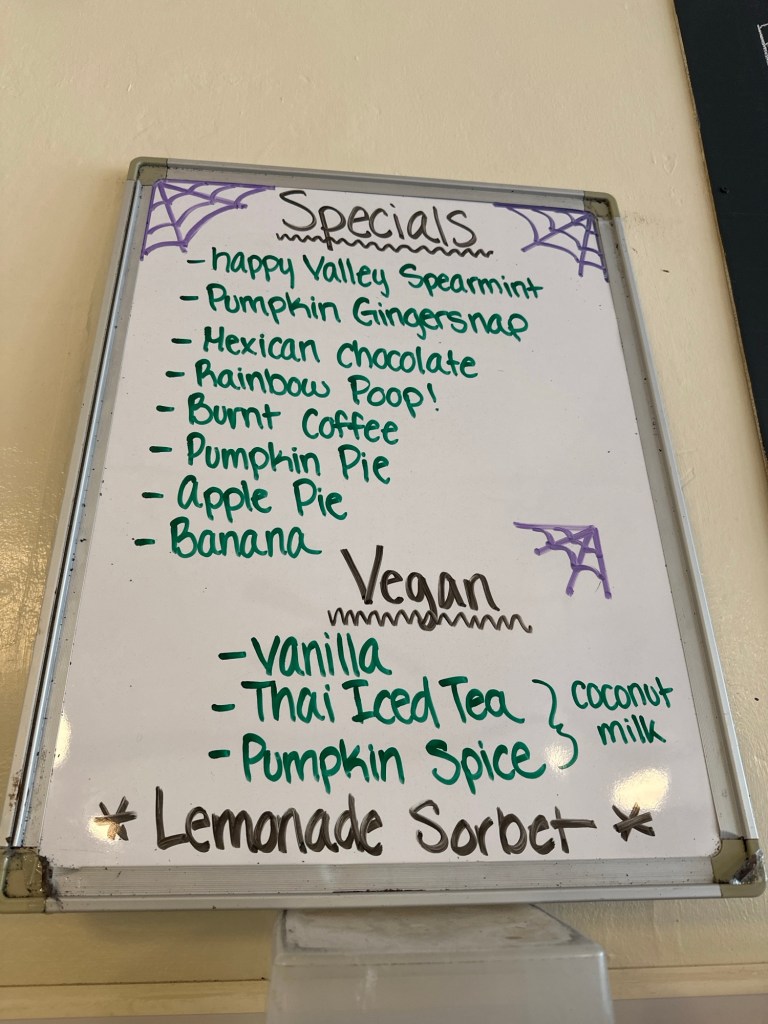 Specials
- happy Valley Spearmint
- Pumpkin Gingersnap
- Mexican chocolate
- Rainbow Poop!
- Burnt Coffee
- Pumpkin Pie
- Apple Pie
- Banana
Vegan
- Vanilla
- Thai Iced Tea } coconut
- Pumpkin Spice } milk
* Lemonade Sorbet *